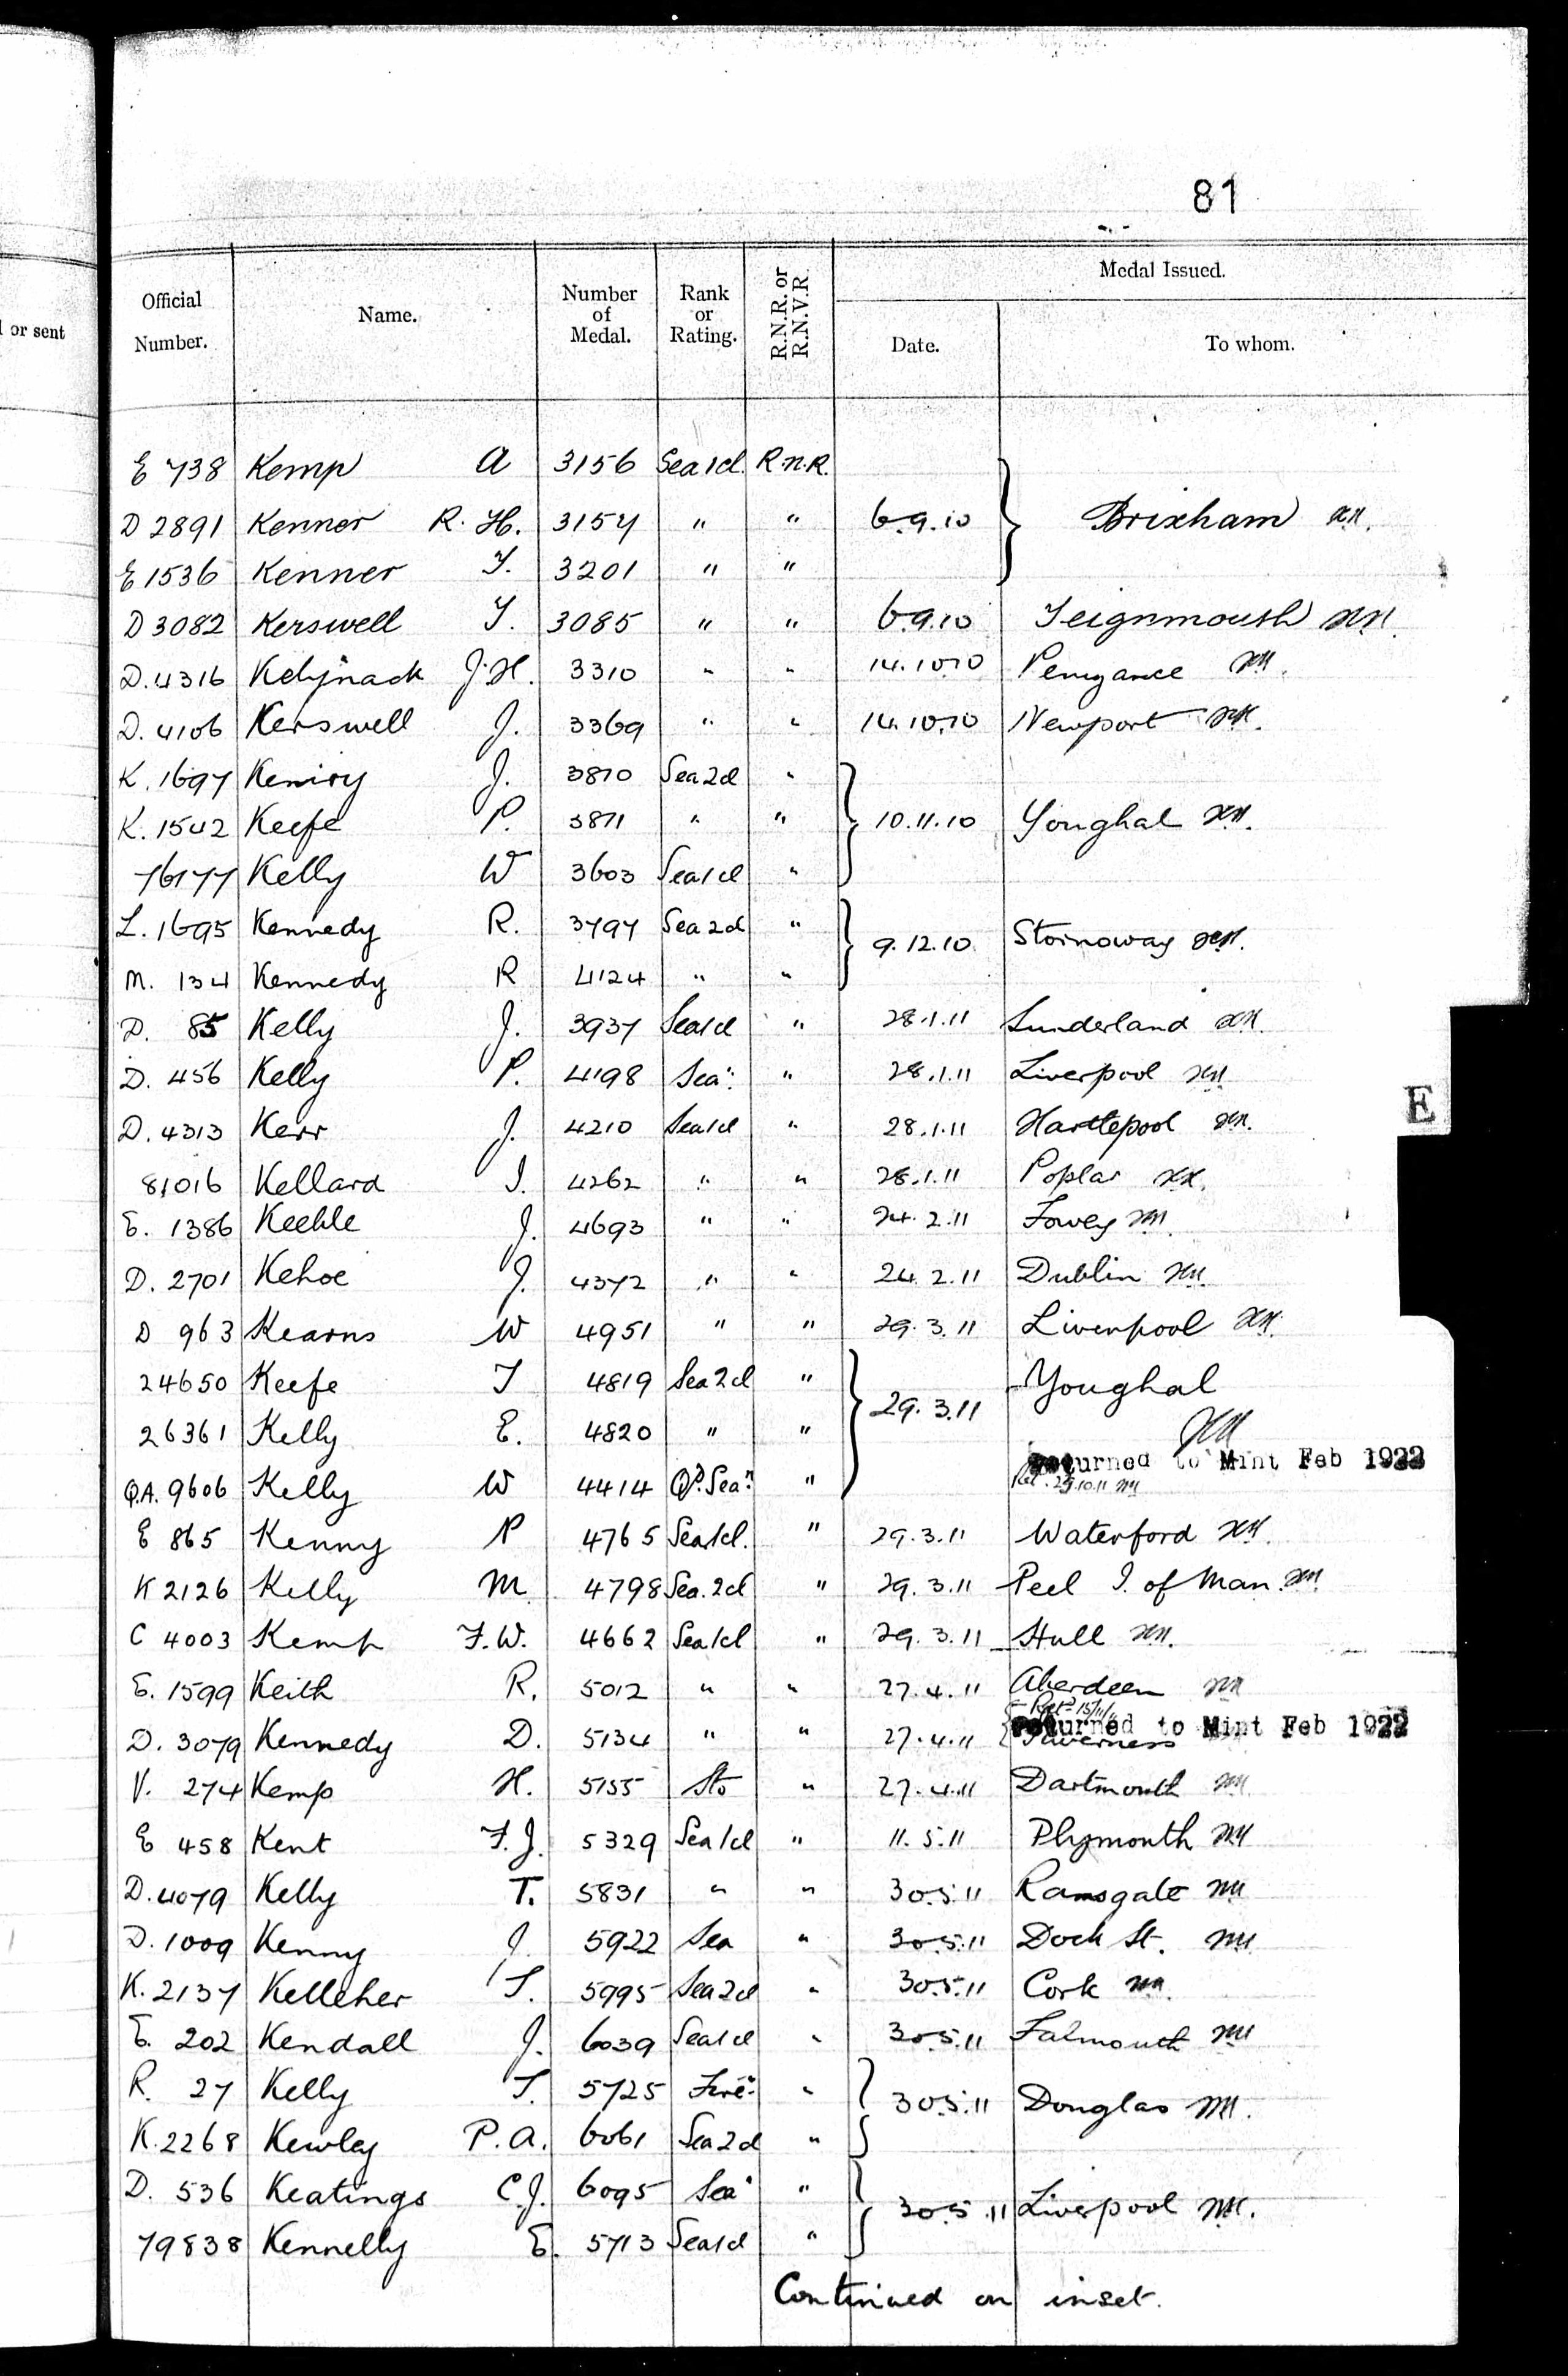 81
l or sent
Official Number. Name. Number of Medal. Rank or Rating. R.N.R. or R.N.V.R. Medal Issued. Date. To whom.
E 738 Kemp A 3156 Sea 1 cl. R.N.R.
D 2891 Kenner R. H. 3157 " " 6.9.10 Brixham
E 1536 Kenner T. 3201 " "
D 3082 Kerswell T. 3085 " " 6.9.10 Teignmouth
D. 4316 Kelynack J. H. 3310 " " 14.10.10 Penzance
D. 4106 Kerswell J. 3369 " " 14.10.10 Newport
K. 1697 Keniry J. 3870 Sea 2 cl "
K. 1542 Keefe P. 3871 " " 10.11.10 Youghal
76177 Kelly W 3603 Sea 1 cl "
L. 1695 Kennedy R. 3797 Sea 2 cl " 9.12.10 Stornoway
M. 134 Kennedy R 4124 " "
D. 85 Kelly J. 3937 Sea 1 cl " 28.1.11 Sunderland
D. 456 Kelly P. 4198 Sea: " 28.1.11 Liverpool
D. 4313 Kerr J. 4210 Sea 1 cl " 28.1.11 Hartlepool
81016 Kellard I. 4262 " " 28.1.11 Poplar
E. 1386 Keehle J. 4693 " " 24.2.11 Fowey
D. 2701 Kehoe J. 4372 " " 24.2.11 Dublin
D 963 Kearns W 4951 " " 29.3.11 Liverpool
24650 Keefe T 4819 Sea 2 cl " 29.3.11 Youghal
26361 Kelly E. 4820 " "
Returned to Mint Feb 1922
Q.A. 9606 Kelly W 4414 Qd. Sean " Ret. 29.10.11
E 865 Kenny P 4765 Sea 1 cl. " 29.3.11 Waterford
K 2126 Kelly M 4798 Sea. 2 cl " 29.3.11 Peel I. of Man.
C 4003 Kemp F. W. 4662 Sea 1 cl " 29.3.11 Hull
E. 1599 Keith R. 5012 " " 27.4.11 Aberdeen
Retd 15/11/11
Returned to Mint Feb 1922
D. 3079 Kennedy D. 5134 " " 27.4.11 Inverness
V. 274 Kemp H. 5155 Sto " 27.4.11 Dartmouth
E 458 Kent F. J. 5329 Sea 1 cl " 11.5.11 Plymouth
D. 4079 Kelly T. 5831 " " 30.5.11 Ramsgate
D. 1009 Kenny J. 5922 Sea " 30.5.11 Dock St.
K. 2137 Kelleher T. 5995 Sea 2 cl " 30.5.11 Cork
E. 202 Kendall J. 6039 Sea 1 cl " 30.5.11 Falmouth
R. 27 Kelly T. 5725 Fire: " 30.5.11 Douglas
K. 2268 Kewley P. A. 6061 Sea 2 cl "
D. 536 Keatings C. J. 6095 Sea " 30.5.11 Liverpool
79838 Kennelly E. 5713 Sea 1 cl "
Continued on inset.
E